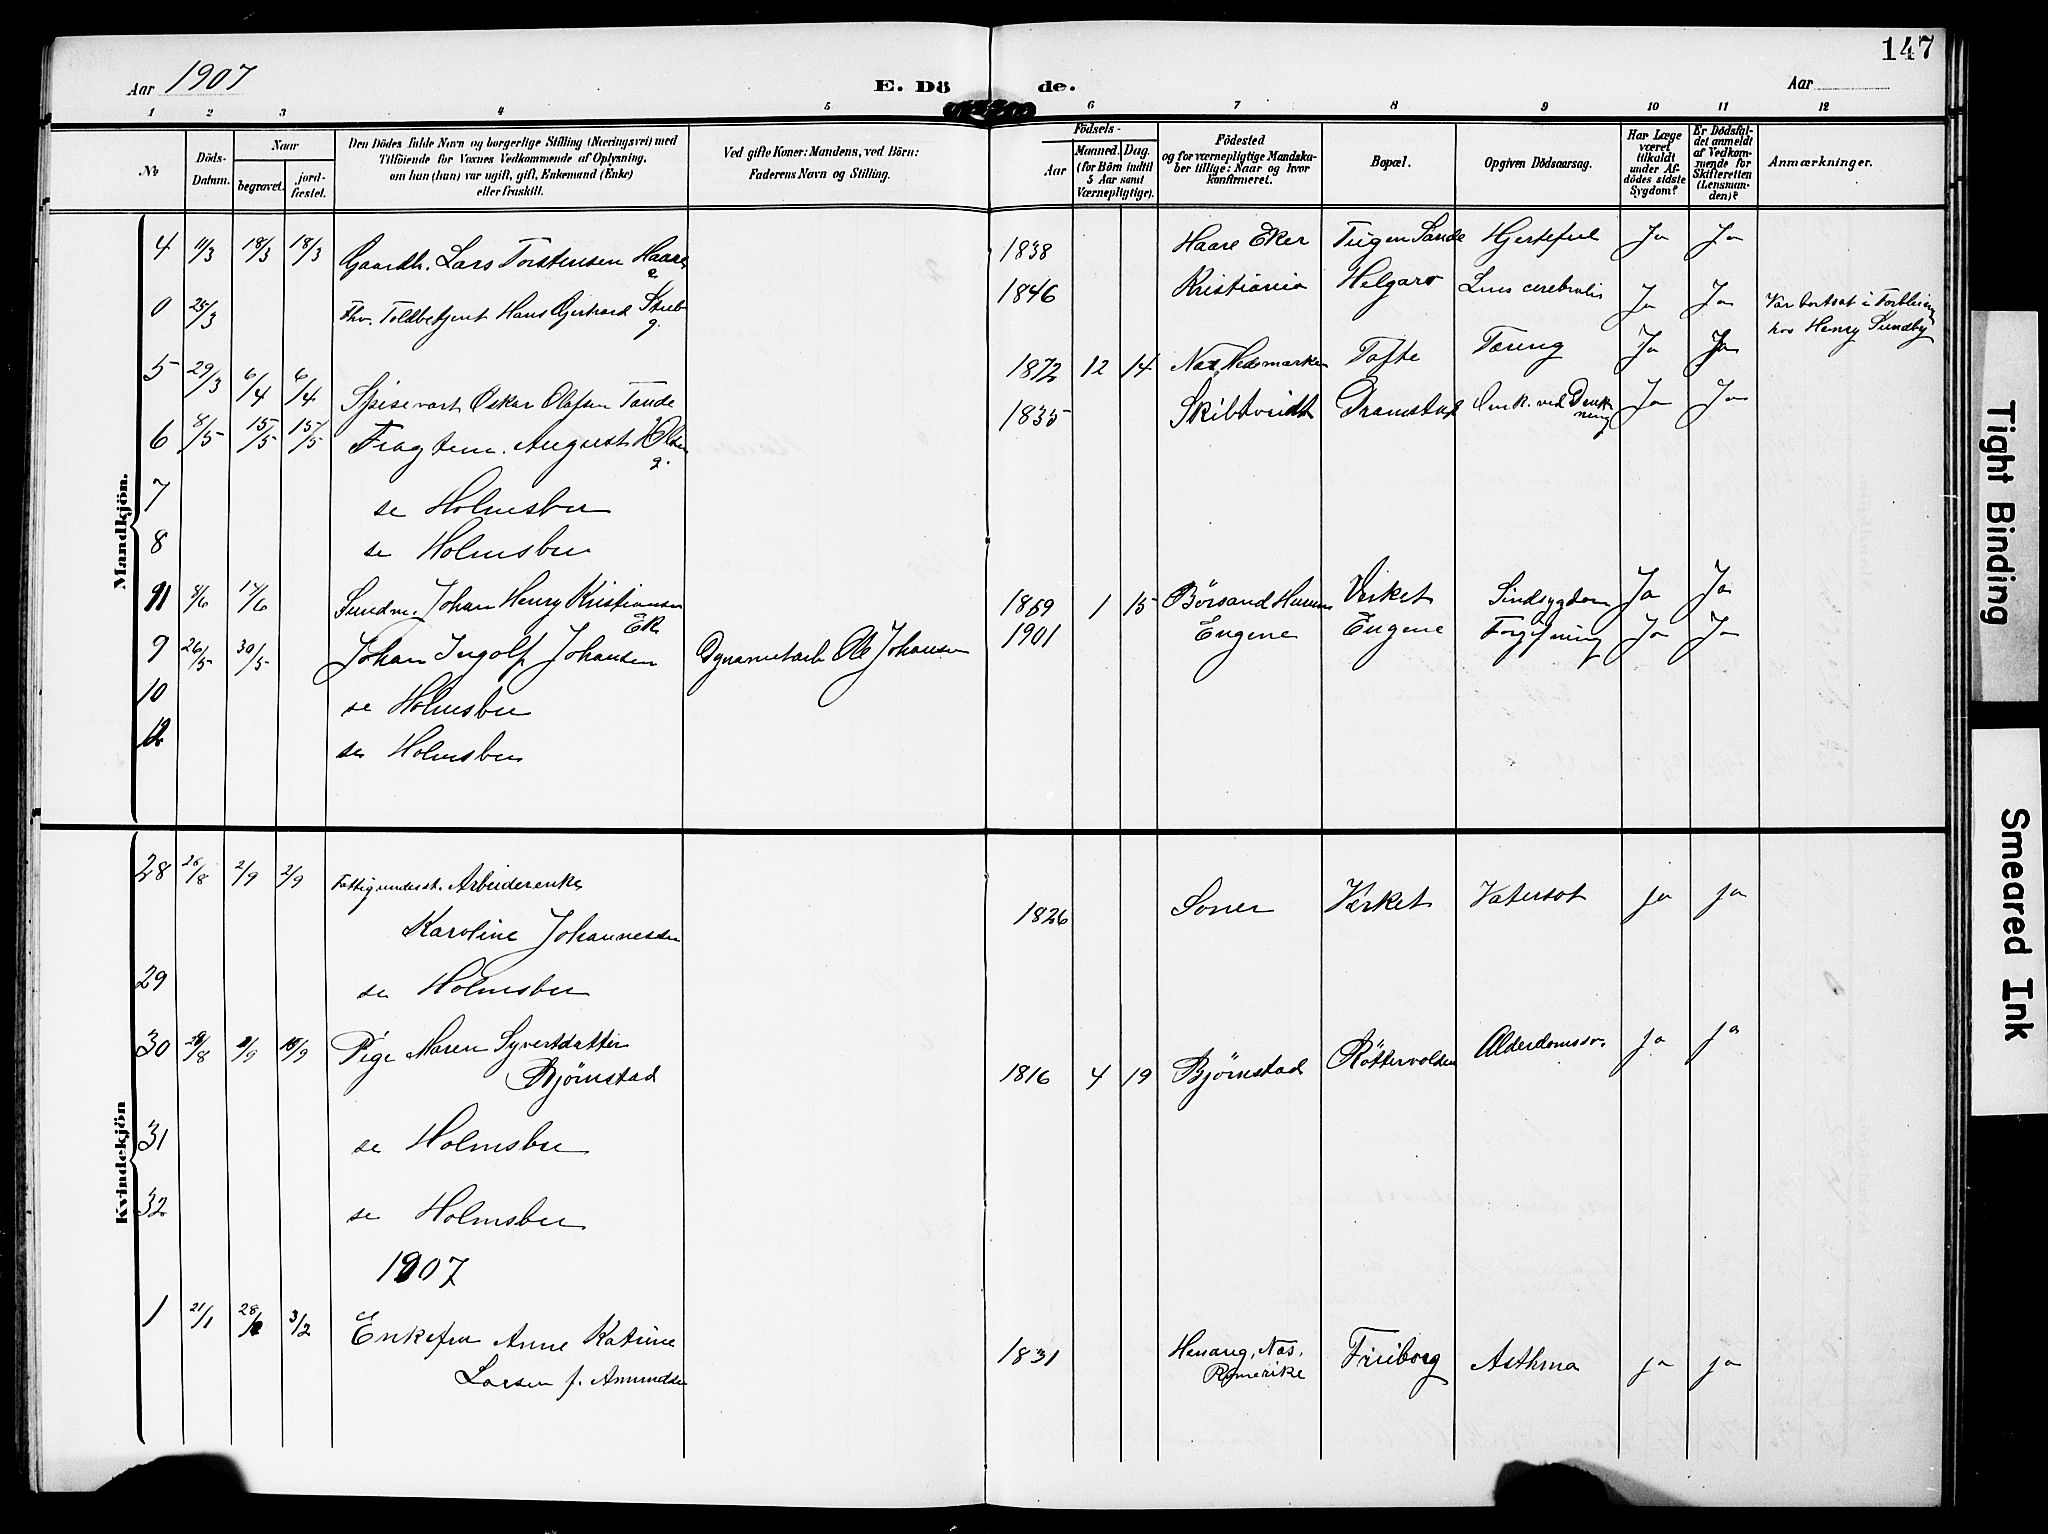 147
Aar 1907
E. Dö de.
Aar
1 2 3 4 5 6 7 8 9 10 11 12
No
Döds-Datum.
Naar
begravet.
jord-fæstet.
Den Dödes fulde Navn og borgerlige Stilling (Næringsvei) med
Tilföiende for Voxnes Vedkommende af Oplysning,
om han (hun) var ugift, gift, Enkemand (Enke)
eller fraskilt.
Ved gifte Koner: Mandens, ved Börn:
Faderens Navn og Stilling.
Födsels-
Aar
Maaned. Dag.
(for Börn indtil
5 Aar samt
Værnepligtige).
Födested
og for værnepligtige Mandska-
ber tillige: Naar og hvor
konfirmeret.
Bopæl.
Opgiven Dödsaarsag.
Har Læge
været
tilkaldt
under Af-
dödes sidste
Sygdom?
Er Dödsfal-
det anmeldt
af Vedkom-
mende for
Skifteretten
(Lensman-
den)?
Anmærkninger.
Mandkjön.
4 11/3 18/3 18/3 Gaardbr. Lars Torstensen Haare 1838 Haare Eker Tugen Sande Hjertefeil Ja Ja
0 25/3 Fhv. Toldbetjent Hans Gjerhard 1846 Kristiania Helgarö Lues cerebralis Ja Ja Var bortsat i
g. hos Henry Sundby
5 29/3 6/4 6/4 Spisevært Oskar Olafsen Tande 1872 12 14 Næs, Hedemarken Tofte Tæring Ja Ja
6 8/5 15/5 15/5 Fragtem. August 1835 Skibtvedt Dramstad Omk. ved Drukning Ja Ja
g.
7 se Holmsbu
8 se Holmsbu
11 8/6 17/6 Sundm. Johan Henry Kristiansen 1869 1 15 Børsand Hurum Verket Sindsygdom Ja Ja
9 26/5 30/5 Johan Ingolf Johansen Dynamitarb. Ole Johansen 1901 Engene Engene Forgiftning Ja Ja
10 se Holmsbu
12 se Holmsbu
Kvindekjön
28 26/8 2/9 2/9 Fattigunderst. Arbeiderenke
Karoline Johannesen 1826 Soner Værket Vatersot ja ja
29 se Holmsbu
30 Pige Maren Syvertsdatter
Bjørnstad 1816 4 19 Bjørnstad Røttervolden Alderdomssv. ja ja
31 se Holmsbu
32 se Holmsbu
1907
1 21/1 3/2 Enkefru Anne Katrine
Larsen f. Amundsen 1831 Næs, Romerike Friiborg Asthma ja ja
Tight Binding
Smeared Ink